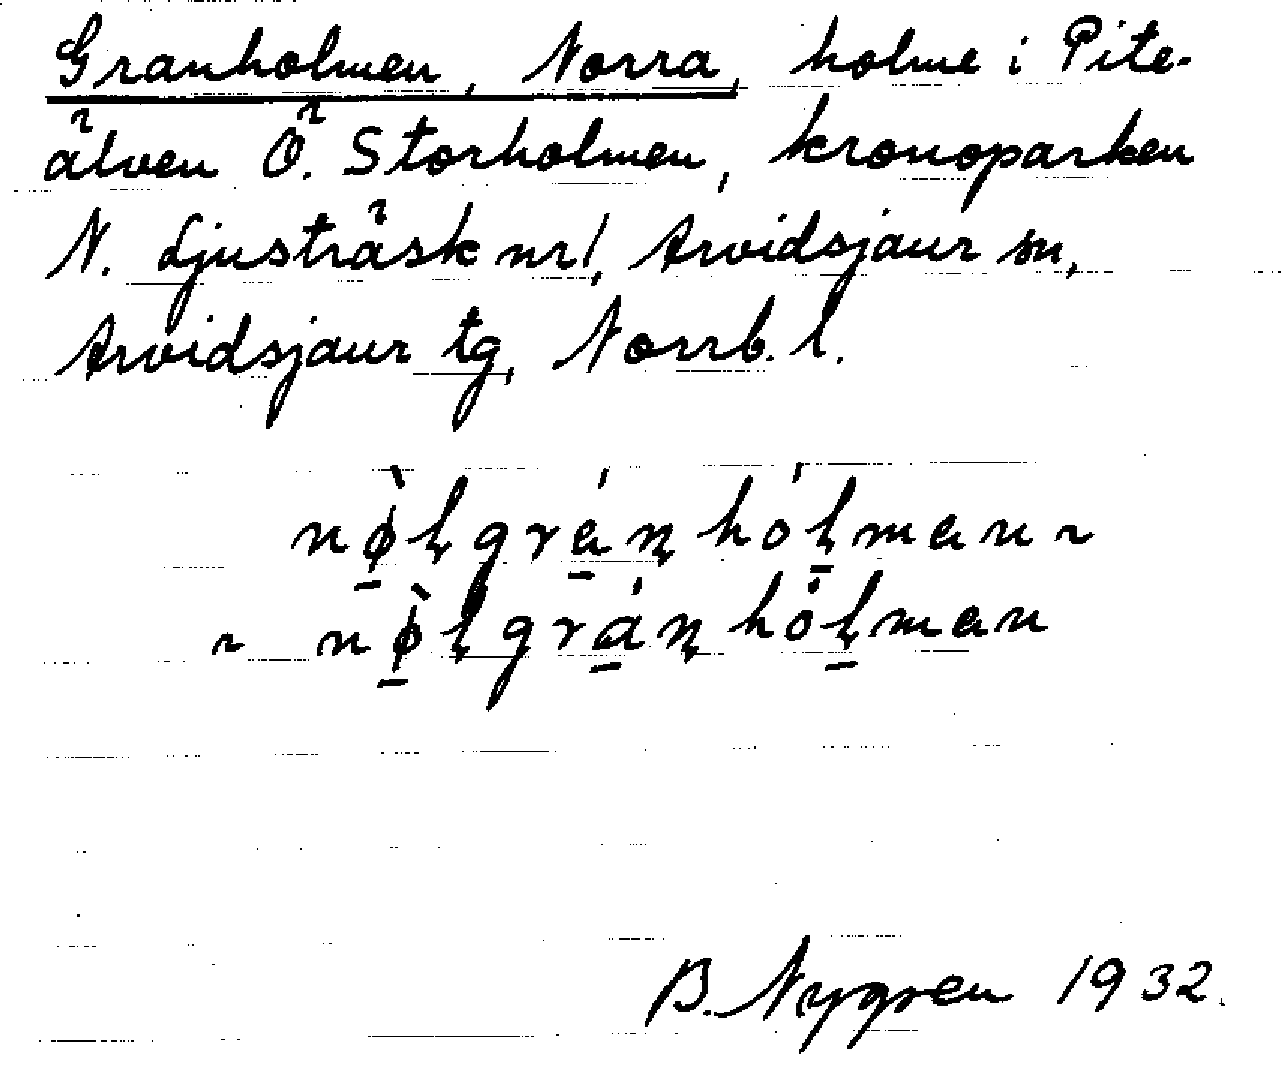 Granholmen, Norra, holme i Pite-
älven Ö. Storholmen, kronoparken
N. Ljusträsk nr 1, Arvidsjaur sn,
Arvidsjaur tg, Norrb. l.
nø̠̀ɭgrá̠ɳhóɭ̠man ~
~ nø̠̀ɭgrá̠ɳhóɭ̠man
B. Nygren 1932.